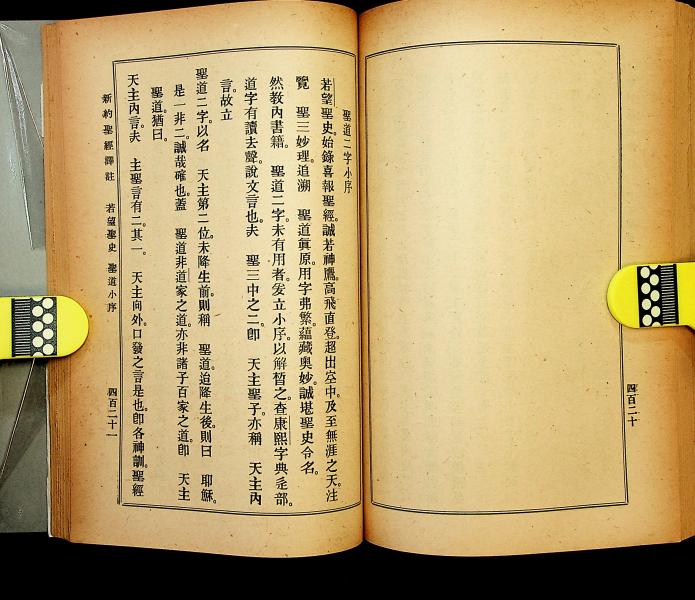 四百二十
聖道二字小序
若望聖史。始錄喜報聖經。誠若神鷹。高飛直登。超出空中。及至無涯之天。注
覽　聖三妙理。追溯　聖道眞原。用字弗繁。蘊藏奥妙。誠堪聖史令名。
然教內書籍。　聖道二字。未有用者。爰立小序。以解晳之。查康熙字典。辵部。
道字有讀去聲。說文言也。夫　聖三中之二。卽　天主聖子。亦稱　天主內
言。故立
聖道二字。以名　天主第二位。未降生前。則稱　聖道。迨降生後。則曰　耶穌。
是一非二。誠哉確也。蓋　聖道非道家之道。亦非諸子百家之道。卽　天主
聖道。猶曰。
天主內言。夫　主聖言有二。其一。　天主向外。口發之言是也。卽各神訓。聖經
新約聖經譯註　若望聖史　聖道小序
四百二十一